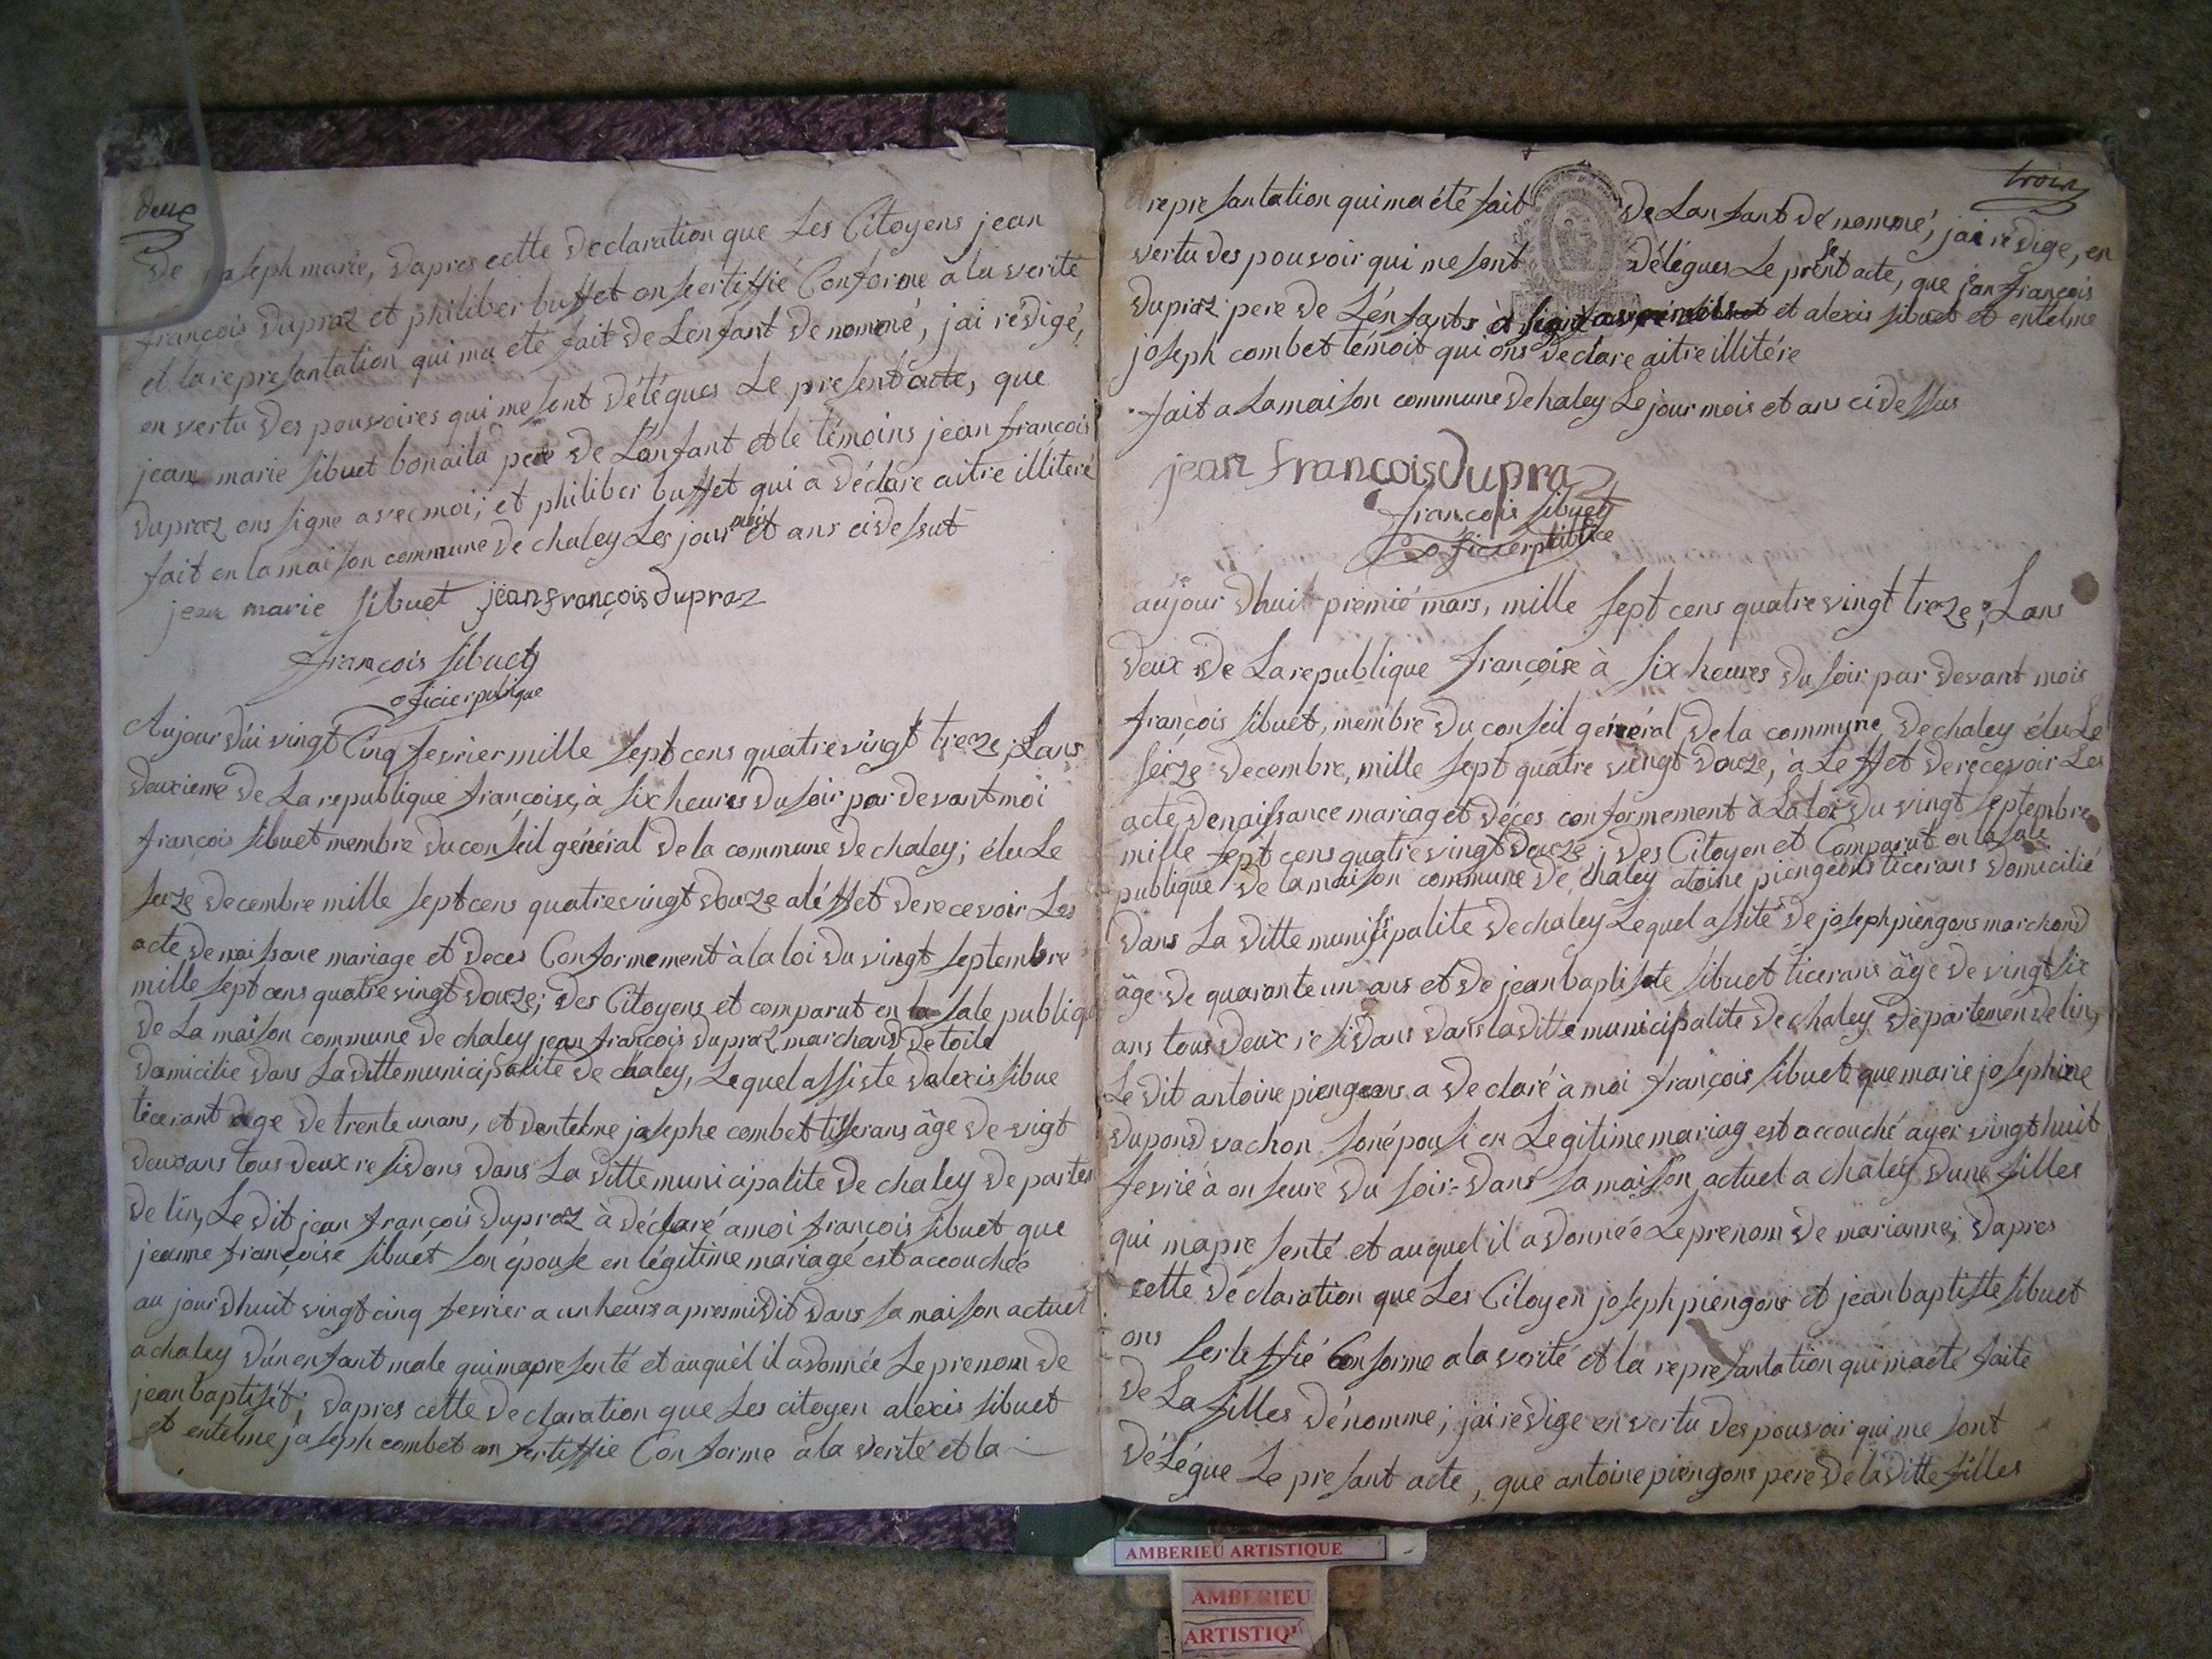 deux
de joseph marie, dapres cette declaration que Les Citoyens jean
françois dupraz et philiber buffet on sertiffié Conforme à la verité
et la represantation qui ma eté fait de Lenfant de nommé, jai rédigé,
en vertu des pouvoires qui me sont délégues Le present acte, que
jean marie sibuet bonaila pere de L'anfant et le témoins jean françois
dupraz ons signe avec moi; et philiber buffet qui a déclare aitre illiteré
fait en la maison commune de chaley Les jour mois et ans ci dessut
jean marie sibuet jean françois dupraz
françois sibuet
oficier publique
Aujour d'ui vingt Cinq fevrier mille sept cens quatre vingt treze, Lans
deuxieme de La republique françoise, à six heures du soir par devant moi
françois sibuet membre du conseil général de la commune de chaley; élu Le
seze decembre mille sept cens quatre vingt douze a léffet de recevoir Les
acte de naissane mariage et deces Conformement à la loi du vingt septembre
mille sept cens quatre vingt douze; des Citoyens et comparut en la sale publiq
de La maison commune de chaley jean françois dupraz marchand de toile
domicilie dans La ditte municipalite de chaley, Lequel assiste dalexis sibue
ticerant age de trente un ans, et dentelme josephe combet tisserans âge de vigt
deux ans tous deux residans dans La ditte municipalite de chaley departen
de lin, Le dit jean françois dupraz à déclaré a moi françois sibuet que
jeanne françoise sibuet son épouse en légitime mariagé est accouchée
au jour dhuit vingt cinq fevrier a un heurs apres midit dans sa maison actuel
a chaley d'un enfant male qui ma presenté et auquél il a donnée Le prenom de
jean baptisét; dapres cette declaration que Les citoyen alexis sibuet
et entelme joseph combet on sertiffie Conforme a la verité et la
troix
represantation qui ma été fait de Lanfant dé nommé, jai rédige, en
vertu des pouvoir qui me sont délégues Le present acte, que jan françois
dupraz pere de L'énfants à signé avec moi et alexis sibuet et entelme
joseph combet témoit qui ons declare aitre illitére
fait a La maison commune de chaley Le jour mois et ans ci dessus
jean françois dupraz
françois sibuet
oficier publice
aujour dhuit premié mars, mille sept cens quatre vingt treze; Lans
deux de La republique françoise à six heures du soir par devant mois
françois sibuet, membre du conseil général de la commune de chaley élu Le
seize decembre, mille sept quatre vingt douze, à Leffet de recevoir Les
acte de naissance mariag et déces conformement à La loi du vingt septembre
mille sept cens quatre vingt douze; des Citoyen et Comparut en la sale
publique de la maison commune de chaley atoine piengeons ticerans domicilié
dans La ditte munisipalite de chaley Lequel assité de joseph piengons marchand
âge de quarante un ans et de jean baptisate sibuet ticerans âge de vingt six
ans tous deux residans dans la ditte municipalite de chaley departemen de lin,
Le dit antoine piengeons a declaré à moi françois sibuet que marie josephine
dupond vachon son épousi en Legitime mariag est accouché ayer vingt huit
fevrié à onseure du soir dans sa maison actuel a chaley dune filles
qui ma presenté et auquel il a donnée Le prenom de marianne; dapres
cette déclaration que Les Citoyen joseph piengons et jean baptiste sibuet
ons serteffié Conforme a la verité et la represantation qui ma été faite
de La filles dénommé; jai redige en vertu des pouvoir qui me sont
délégue Le present acte, que antoine piengons pere de la ditte filles
AMBERIEU ARTISTIQUE
AMBERIEU
ARTISTIQ